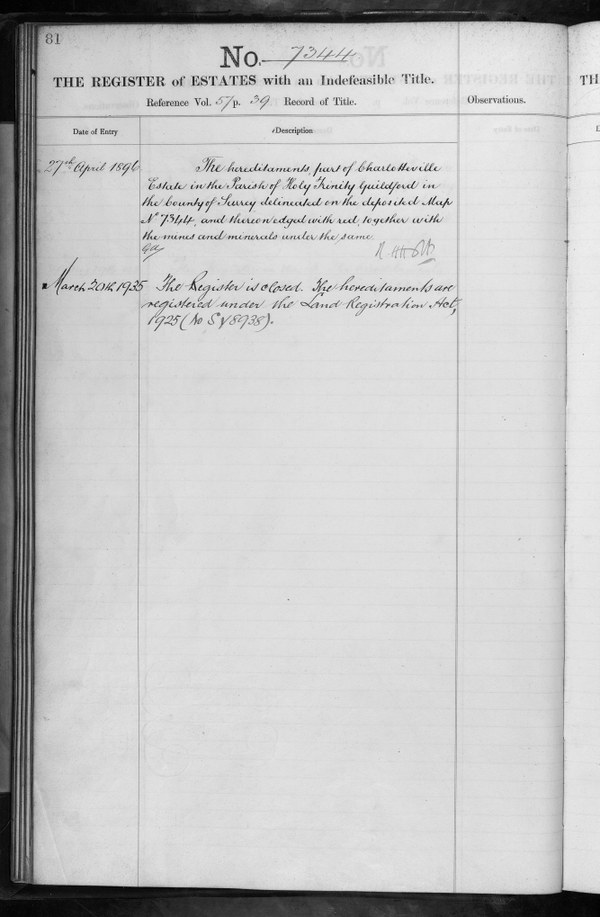 81
No. 7344
THE REGISTER of ESTATES with an Indefeasible Title.
Reference Vol. 57 p. 39 Record of Title.
Observations.
Date of Entry
Description
27th April 1896
The hereditaments, part of Charlotteville
Estate in the Parish of Holy Trinity Guildford in
the County of Surrey delineated on the deposited Map
No 7344, and thereon edged with red, together with
the mines and minerals under the same.
March 20th 1935
The Register is closed. The hereditaments are
registered under the Land Registration Act,
1925 (No Sy 8938).
TH